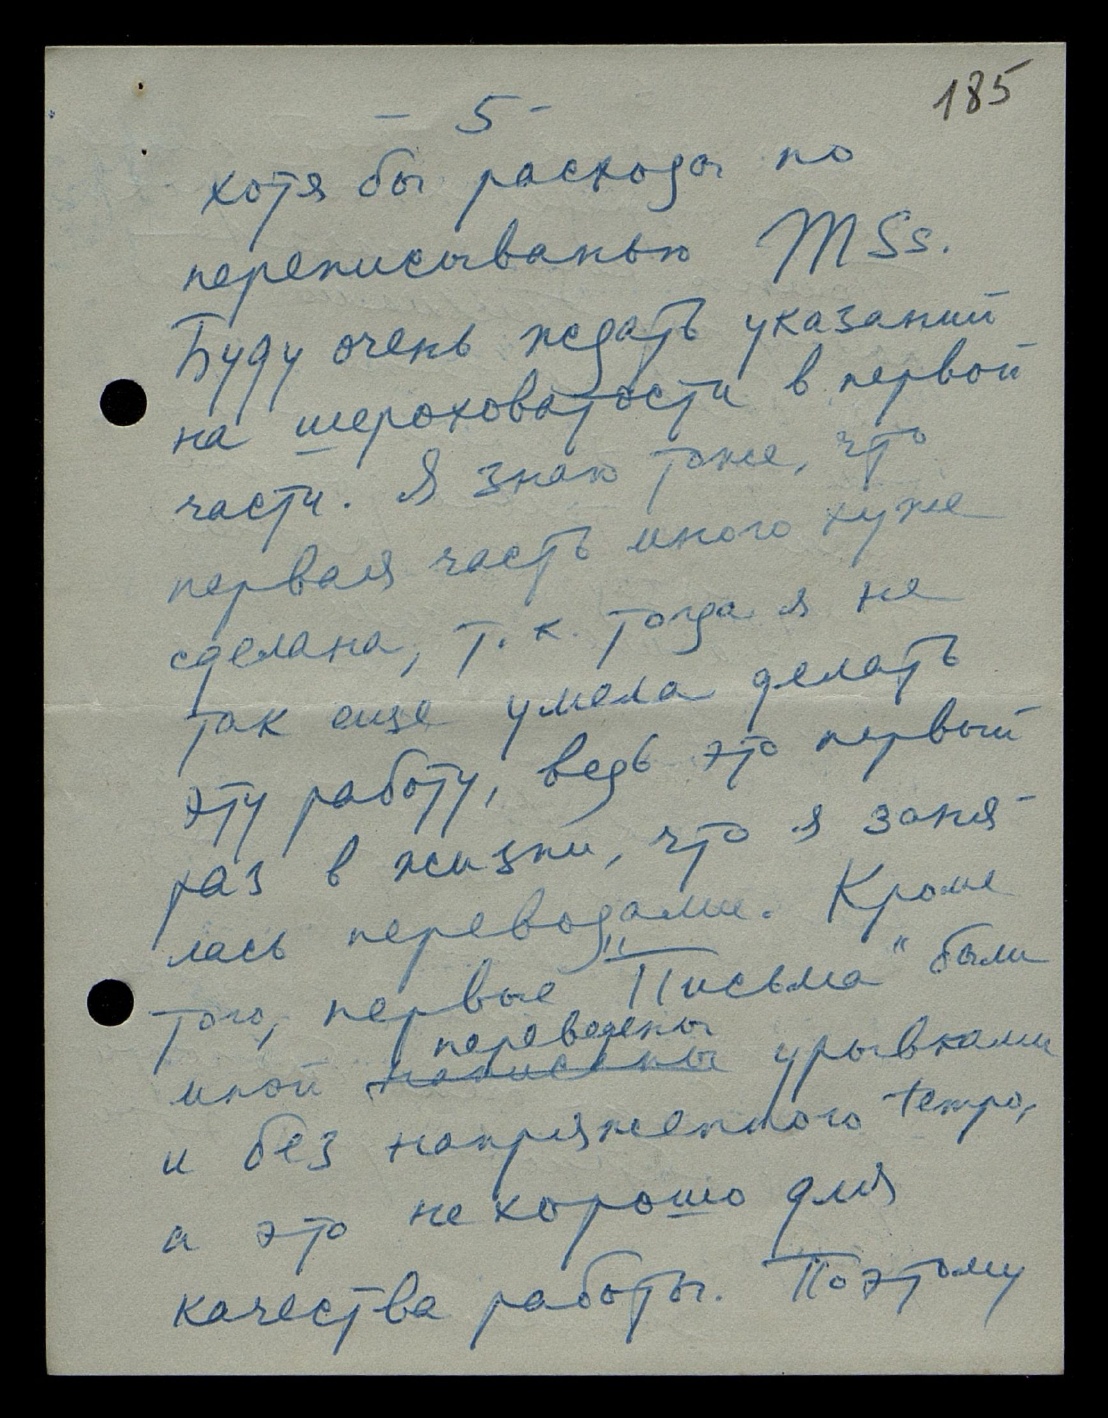 185
- 5 -
хотя бы расходы по
переписыванью MSs.
Буду очень ждать указаний
на шероховатости в первой
части. Я знаю тоже, что
первая часть много хуже
сделана, т. к. тогда я не
так еще умела делать
эту работу, ведь это первый
раз в жизни, что я заня-
лась переводами. Кроме
того, первые "Письма" были
переведены
мной написаны урывками
и без напряженного tempo,
а это не хорошо для
качества работы. Поэтому